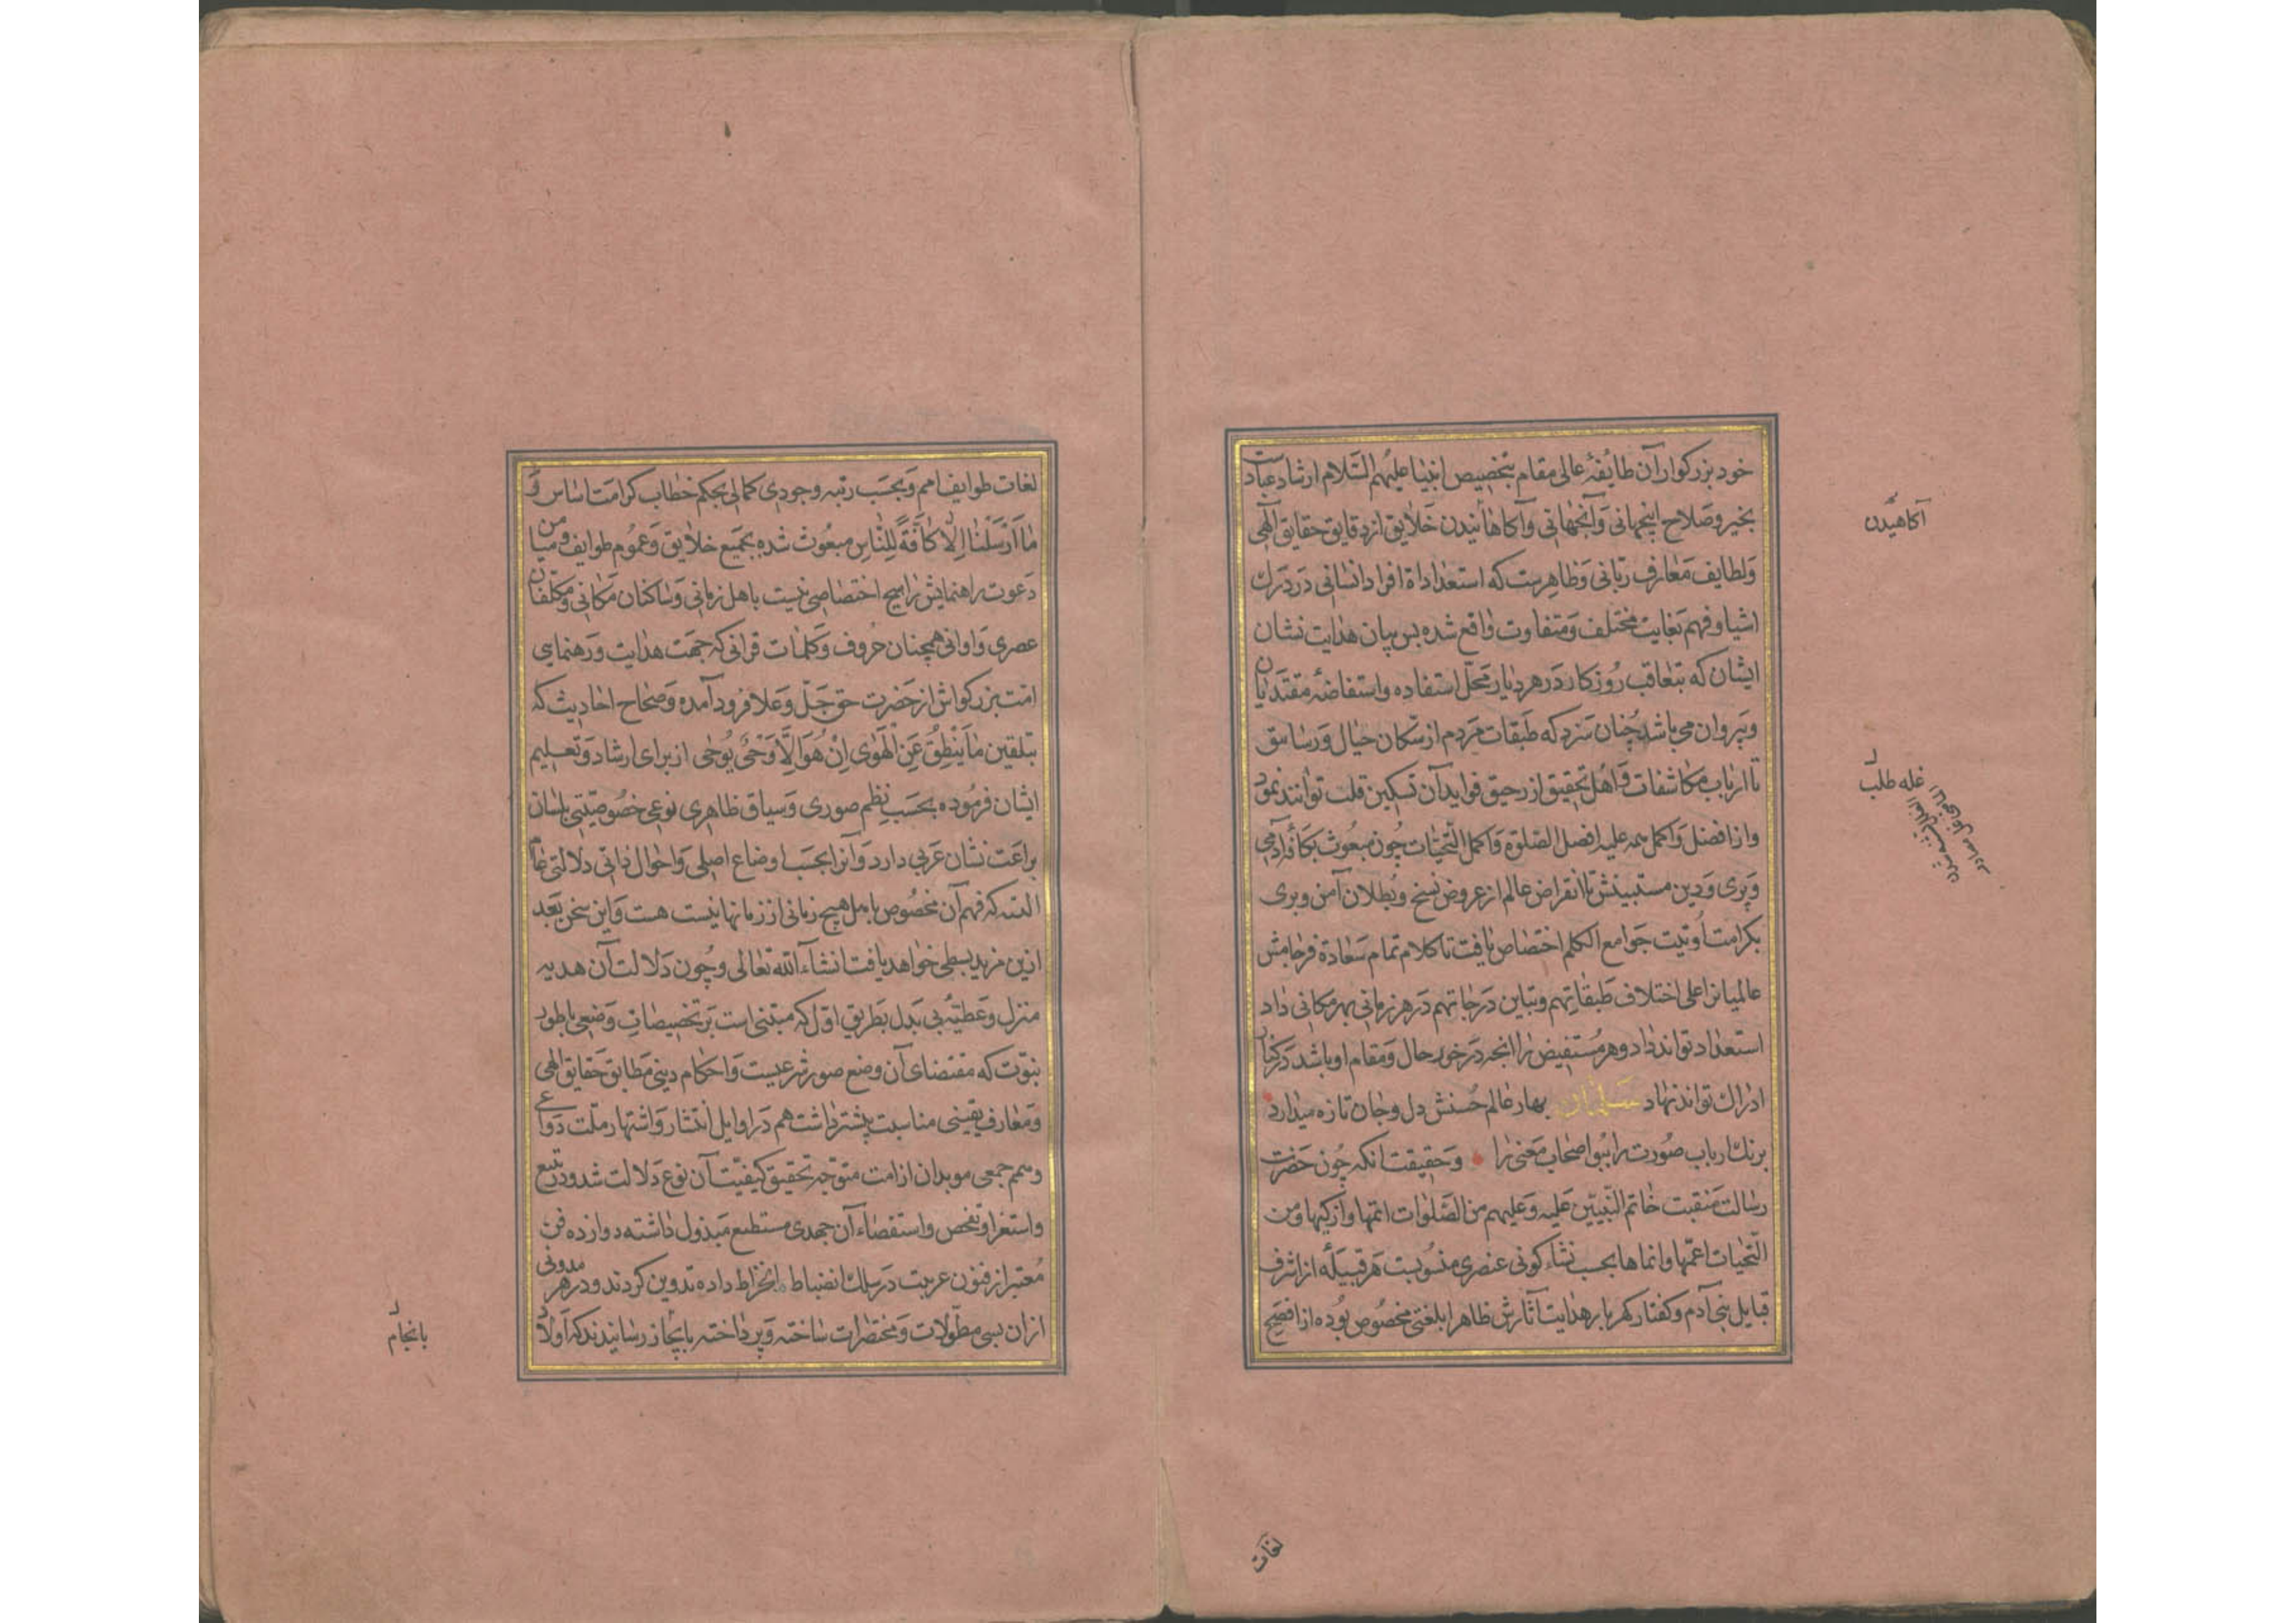 خود بزرکوار آن طایفهٔ عالی مقام بتخصیص انبیا علیهم السّلام ارشاد عبادست
بخیر و صلاح اینجهانی وآنجهانی وآکاهانیدن خلایق از دقایق حقایق آلهی
ولطایف معارف ربانی وظاهرست که استعداداة افراد انسانی در درک
اشیا وفهم بغایت مختلف ومتفاوت واقع شده بس بیان هدایت نشان
ایشان که بتعاقب روزکار در هر دیار محلّ استفاده واستفاضهٔ مقتدیان
وپیروان می باشد چنان سزد که طبقات مردم از سکان خیال ورساسق
تا ارباب مکاشفات واهل تحقیق از رحیق فواید آن تسکین قلت توانند نمود
واز افضل واکمل همه علیه افضل الصّلوة واکمل التّحیّات چون مبعوث بکافهٔ آدمی
وپری ودین مستبینش تا انقراض عالم از عروض نسخ وبطلان آمن وبری
بکرامت اوتیت جوامع الکلم اختصاص یافت تا کلام تمام سعادة فرجامش
عالمیانرا علی اختلاف طبقاتهم وتباین درجاتهم در هر زمانی بهر مکانی داد
استعداد تواند داد وهر مستفیض را انجه در خور حال ومقام او باشد در کنار
ادراک تواند نهاد بهار عالم حسنش دل وجان تازه میدارد
برنک ارباب صورت را ببو اصحاب معنی را وحقیقت انکه چون حضرت
رسالت منقبت خاتم النّبیّین علیه وعلیهم من الصّلوات اتمّها وازکیها ومن
التّحیّات اعمّها وانماها بحسب نشاء کونی عنصری منسوبست هر قبیلهٔ از اشرف
قبایل بنی آدم وکفتار کهربار هدایت آثارش ظاهرا بلغتی مخصوص بوده از افصح
آکاهیدن
غله طلب
لغات
لغات طوایف امم وبحسب رتبه وجودی کمالی بحکم خطاب کرامت اساس و
ما ارسلناک الّا کافّةً للنّاس مبعوث شده بجمیع خلایق وعموم طوایف ومن میا
دعوت راهنمایش را هیچ اختصاصی نیست باهل زمانی وساکنان مکانی ومکلّفان
عصری واوانی همچنان حروف وکلمات قرانی که جهت هدایت ورهنمایی
امت بزرکواش از حضرت حق جلّ وعلا فرود آمده وصحاح احادیث که
بتلقین ما ینطق عن الهوی ان هو الّا وحی یوحی از برای ارشاد وتعلیم
ایشان فرموده بحسب نظم صوری وسیاق ظاهری نوعی خصوصیّتی بلسان
براعت نشان عربی دارد وآنرا بحسب اوضاع اصلی واحوال ذاتی دلالتی عام
البته که فهم آن مخصوص باهل هیچ زمانی از زمانها نیست هست واین سخن بعد
ازین مزید بسطی خواهد یافت انشآء الله تعالی وچون دلالت آن هدیه
منزل وعطیّهٔ بی بدل بطریق اوّل که مبتنی است بر تخصیصات وضعی باطور
نبوّت که مقتضای آن وضع صور شرعیست واحکام دینی مطابق حقایق الهی
ومعارف یقینی مناسبت پیشتر داشت هم در اوایل انتشار واشتهار ملّت دواعی
وهمم جمعی موبدان از امت متوجّه تحقیق کیفیّت آن نوع دلالت شد ودر تتبع
واستغراو تفحص واستقصاء آن جهدی مستطیع مبذول داشته دوازده فن
معتبر از فنون عربیت در سلک انضباط انخراط داده تدوین کردند ودر هر مدونی
ازان بسی مطوّلات ومختصرات ساخته وپرداخته بایجاز رسانیدند که اولاد
بانجام